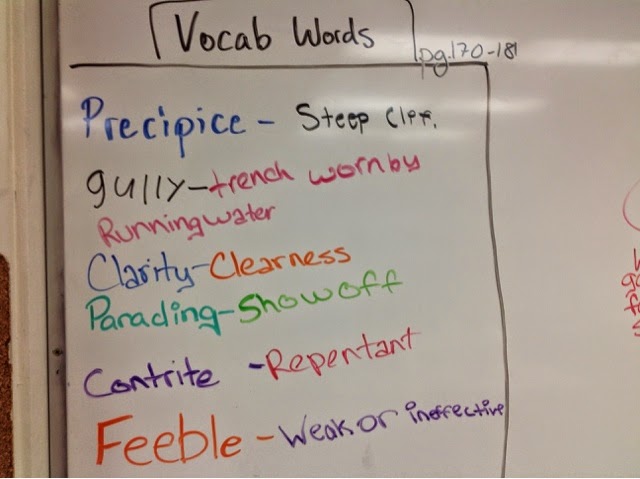 Vocab Words
pg. 170-181
Precipice - Steep Cliff.
gully - trench worn by
Running water
Clarity - Clearness
Parading - Show off
Contrite - Repentant
Feeble - Weak or ineffective